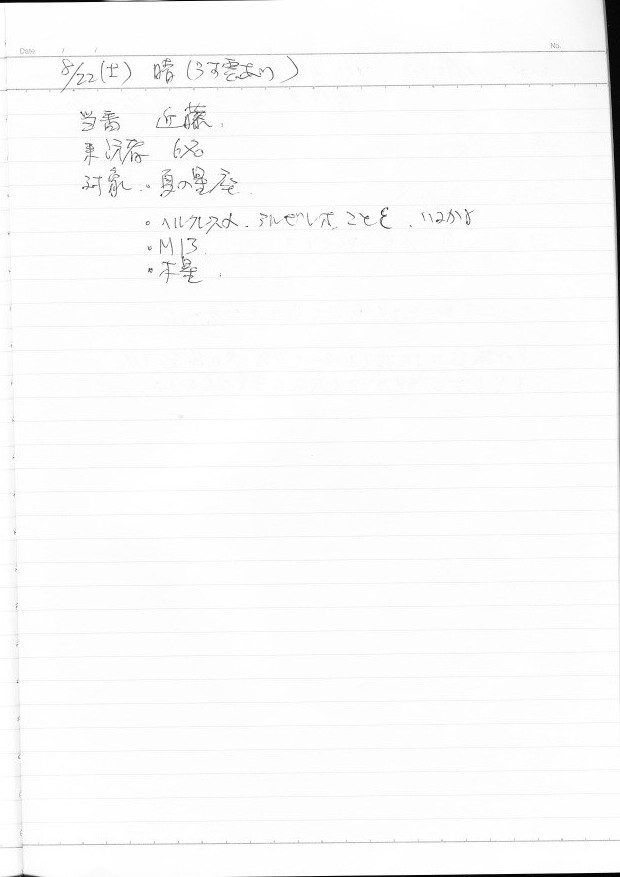 Date / /
No.
8/22(土) 晴(うす雲あり)
当番 近藤.
来訪者 6名
対象.。夏の星座.
。ヘルクレスα、アルビレオ、こと座ε、いるかγ
。M13
。木星.